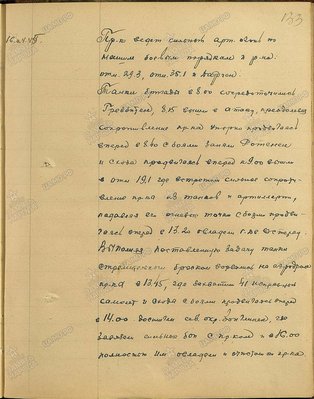 133
16.04.45. Пр-к ведет сильный арт. огонь по
нашим боевым порядкам в р-не
отм. 29,3, отм. 35.1 и
Танки бригады в 8.00 сосредоточились
8.15 вышли в атаку, преодолевая
сопротивление пр-ка упорно продвигаясь
вперед с 8.40 с боями заняли
и снова продвигаясь вперед к 9.00 вышли
к отм 19,1 где встретили сильное сопротивление
пр-ка из танков и артиллерии,
подавляя его огневые точки с боями продвигаясь
вперед к 13.20 овладели
Выполняя поставленную задачу танки
стремительным броском ворвались на аэродром
пр-ка в 13.45, где захватили 41 исправный
самолет и снова с боями продвигаясь вперед
в 14.00 достигли сев. окр. где
завязали сильный бой с пр-ком и в 16.00
полностью им овладели и очистили от пр-ка